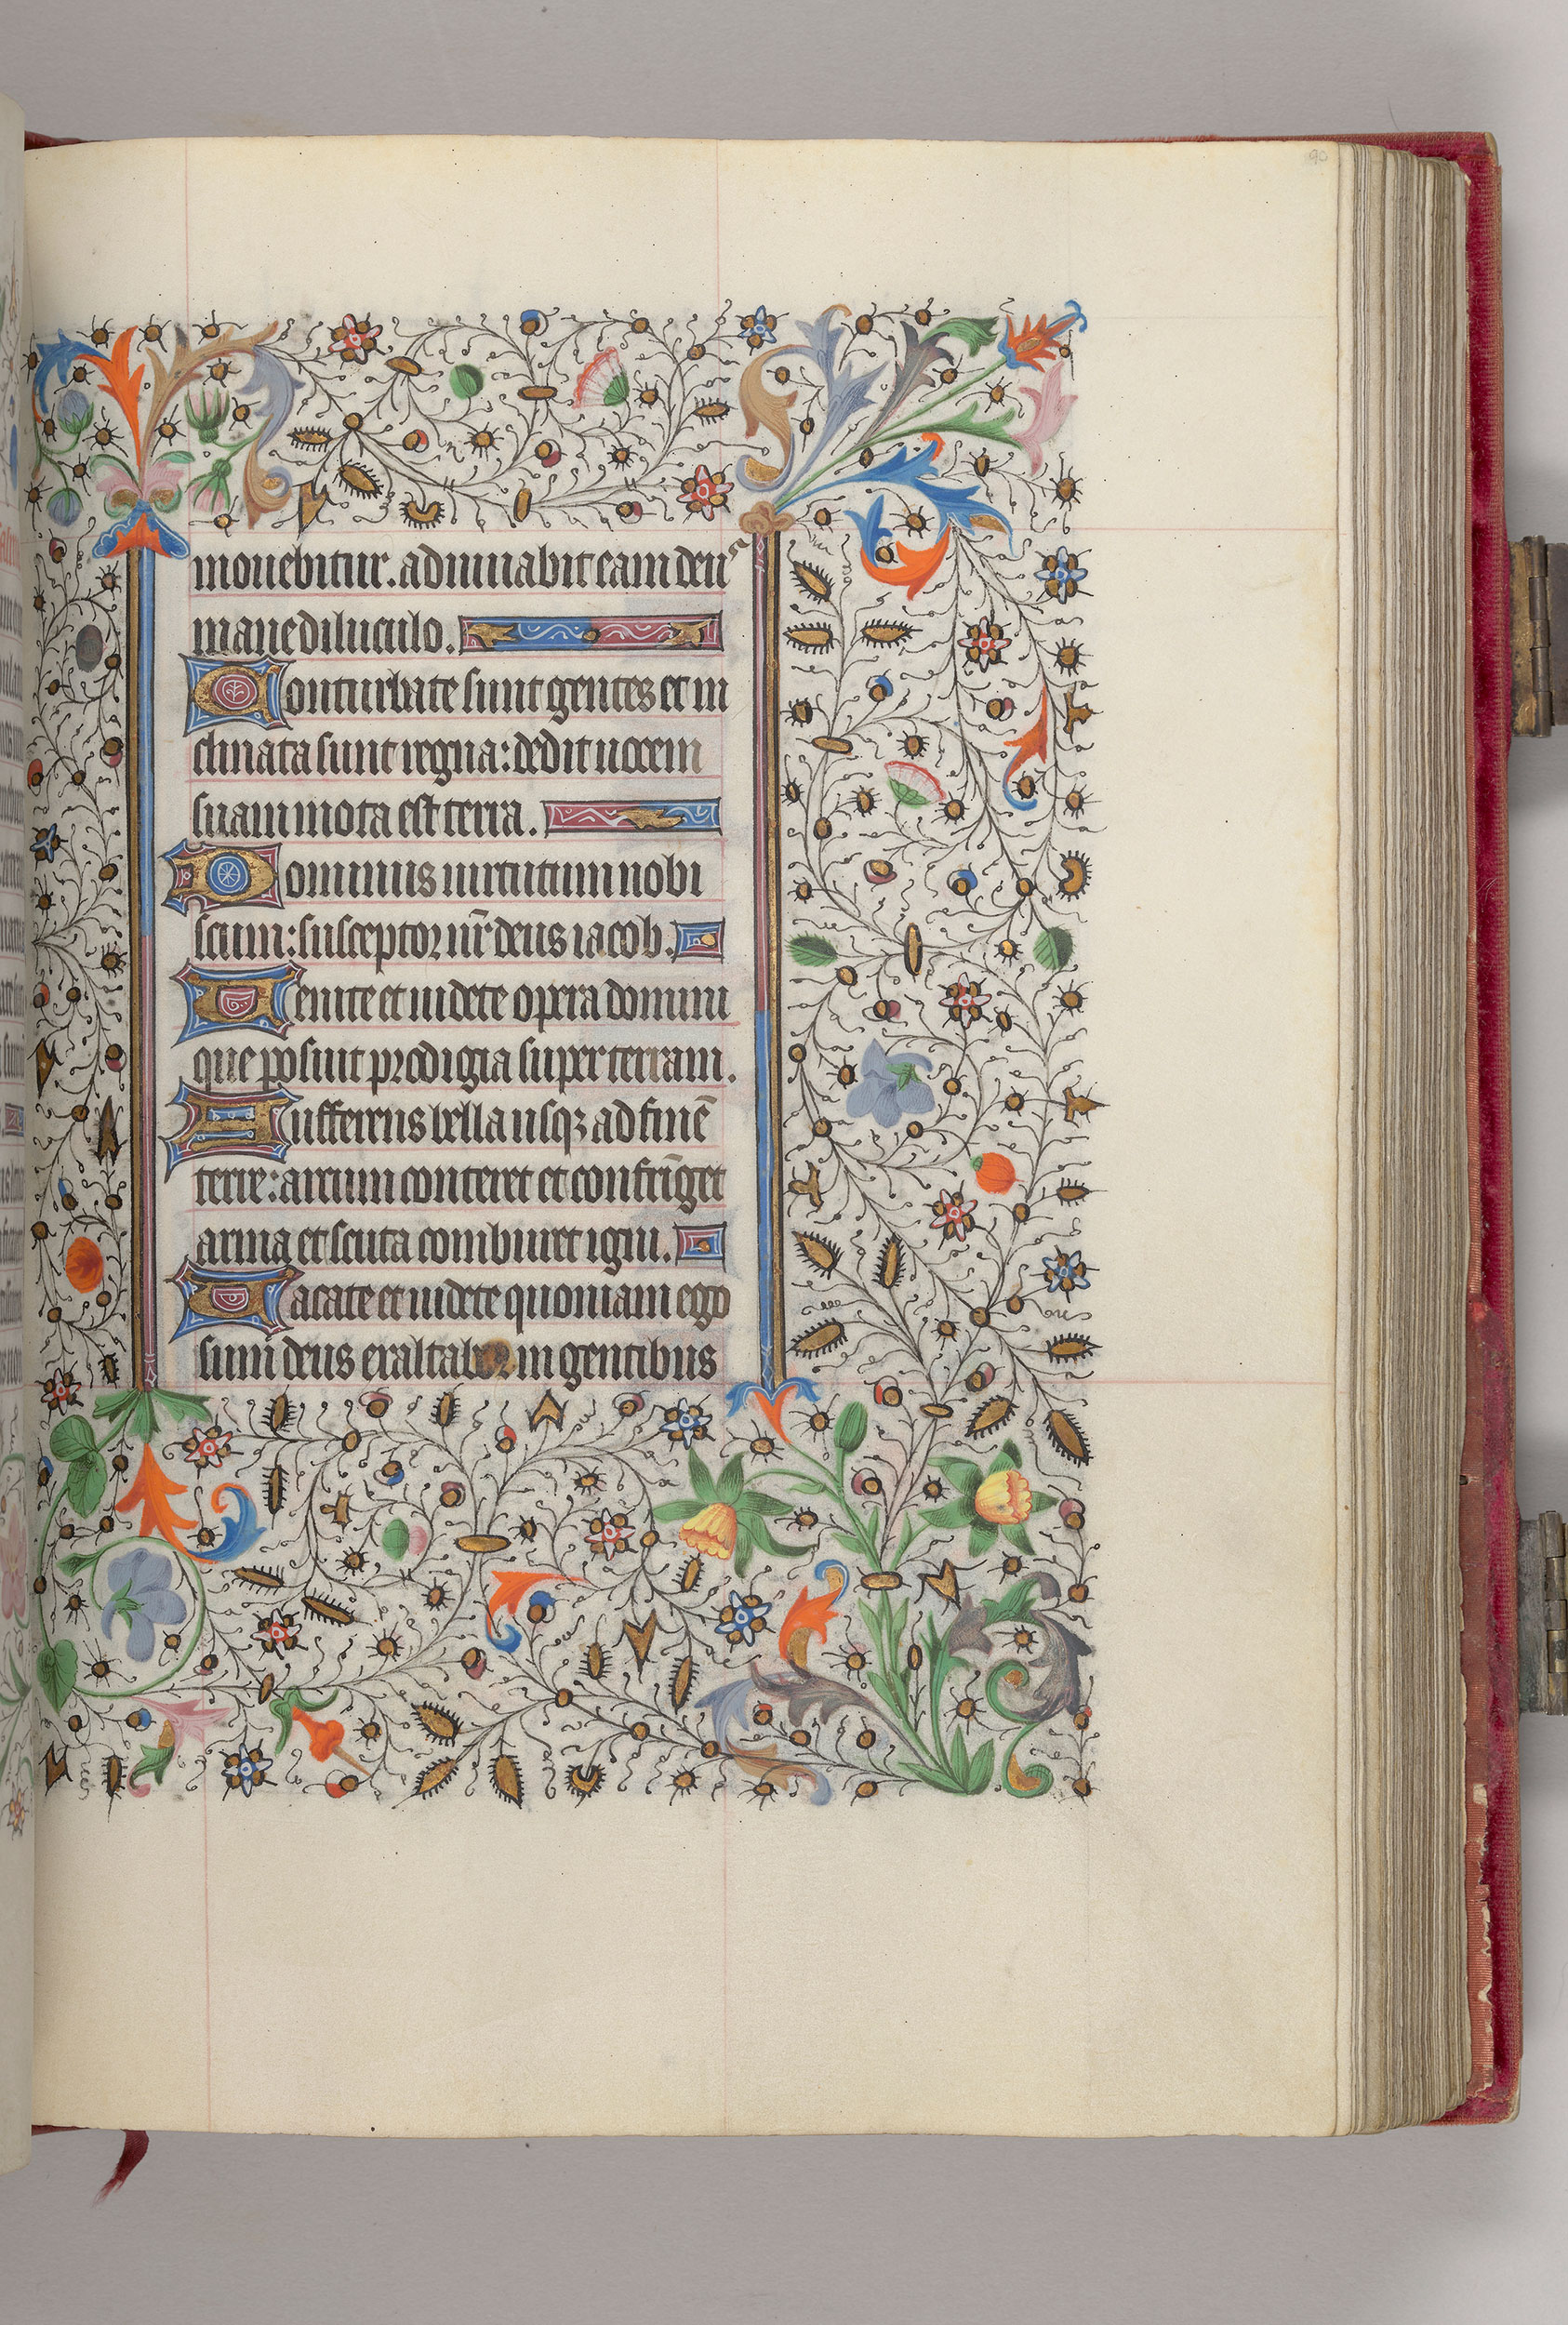 90
mouebitur. adiuuabit eam deus
mane diluculo.
Conturbate sunt gentes et in
clinata sunt regna: dedit uocem
suam mota est terra.
Dominus uirtutum nobi
scum: susceptor nr̄ deus iacob.
Uenite et uidete opera domini
que posuit prodigia super terram.
Aufferens bella usqꝫ ad finē
terre: arcum conteret et confrīget
arma et scuta comburet igni.
Uacate et uidete quoniam ego
sum deus exaltabor in gentibus